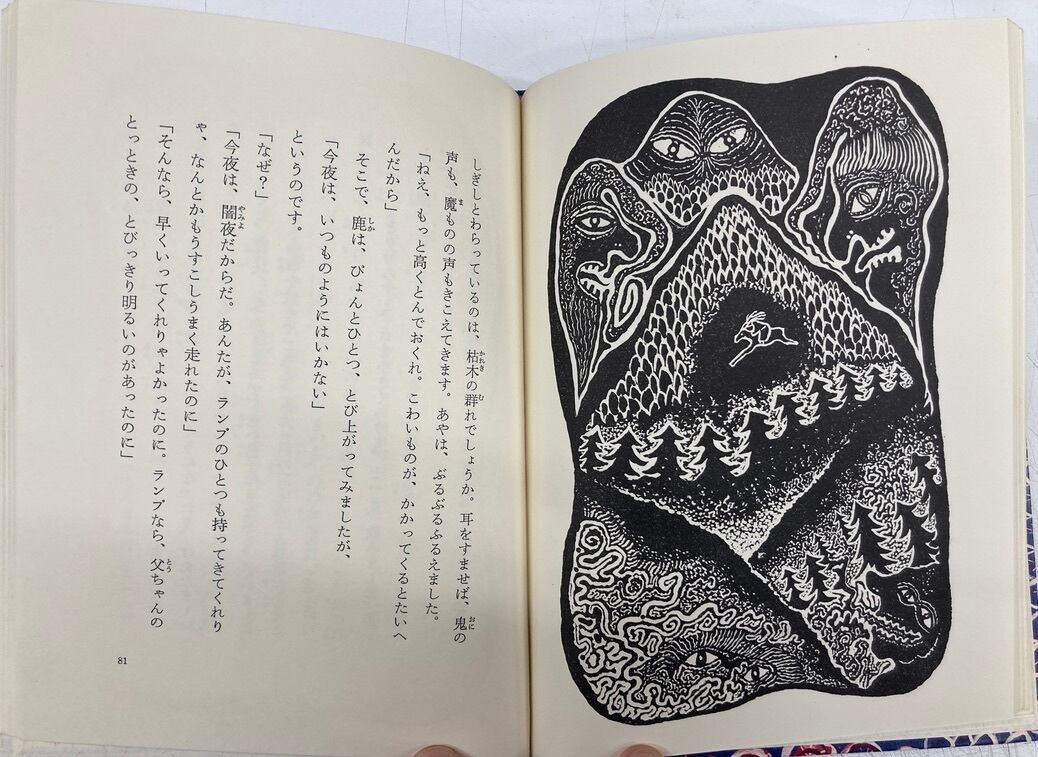 しぎしとわらっているのは、枯木の群れでしょうか。耳をすませば、鬼の
声も、魔ものの声もきこえてきます。あやは、ぶるぶるふるえました。
「ねえ、もっと高くとんでおくれ。こわいものが、かかってくるとたいへ
んだから」
そこで、鹿は、ぴょんとひとつ、とび上がってみましたが、
「今夜は、いつものようにはいかない」
というのです。
「なぜ?」
「今夜は、闇夜だからだ。あんたが、ランプのひとつも持ってきてくれり
ゃ、なんとかもうすこしうまく走れたのに」
「そんなら、早くいってくれりゃよかったのに。ランプなら、父ちゃんの
とっときの、とびっきり明るいのがあったのに」
81